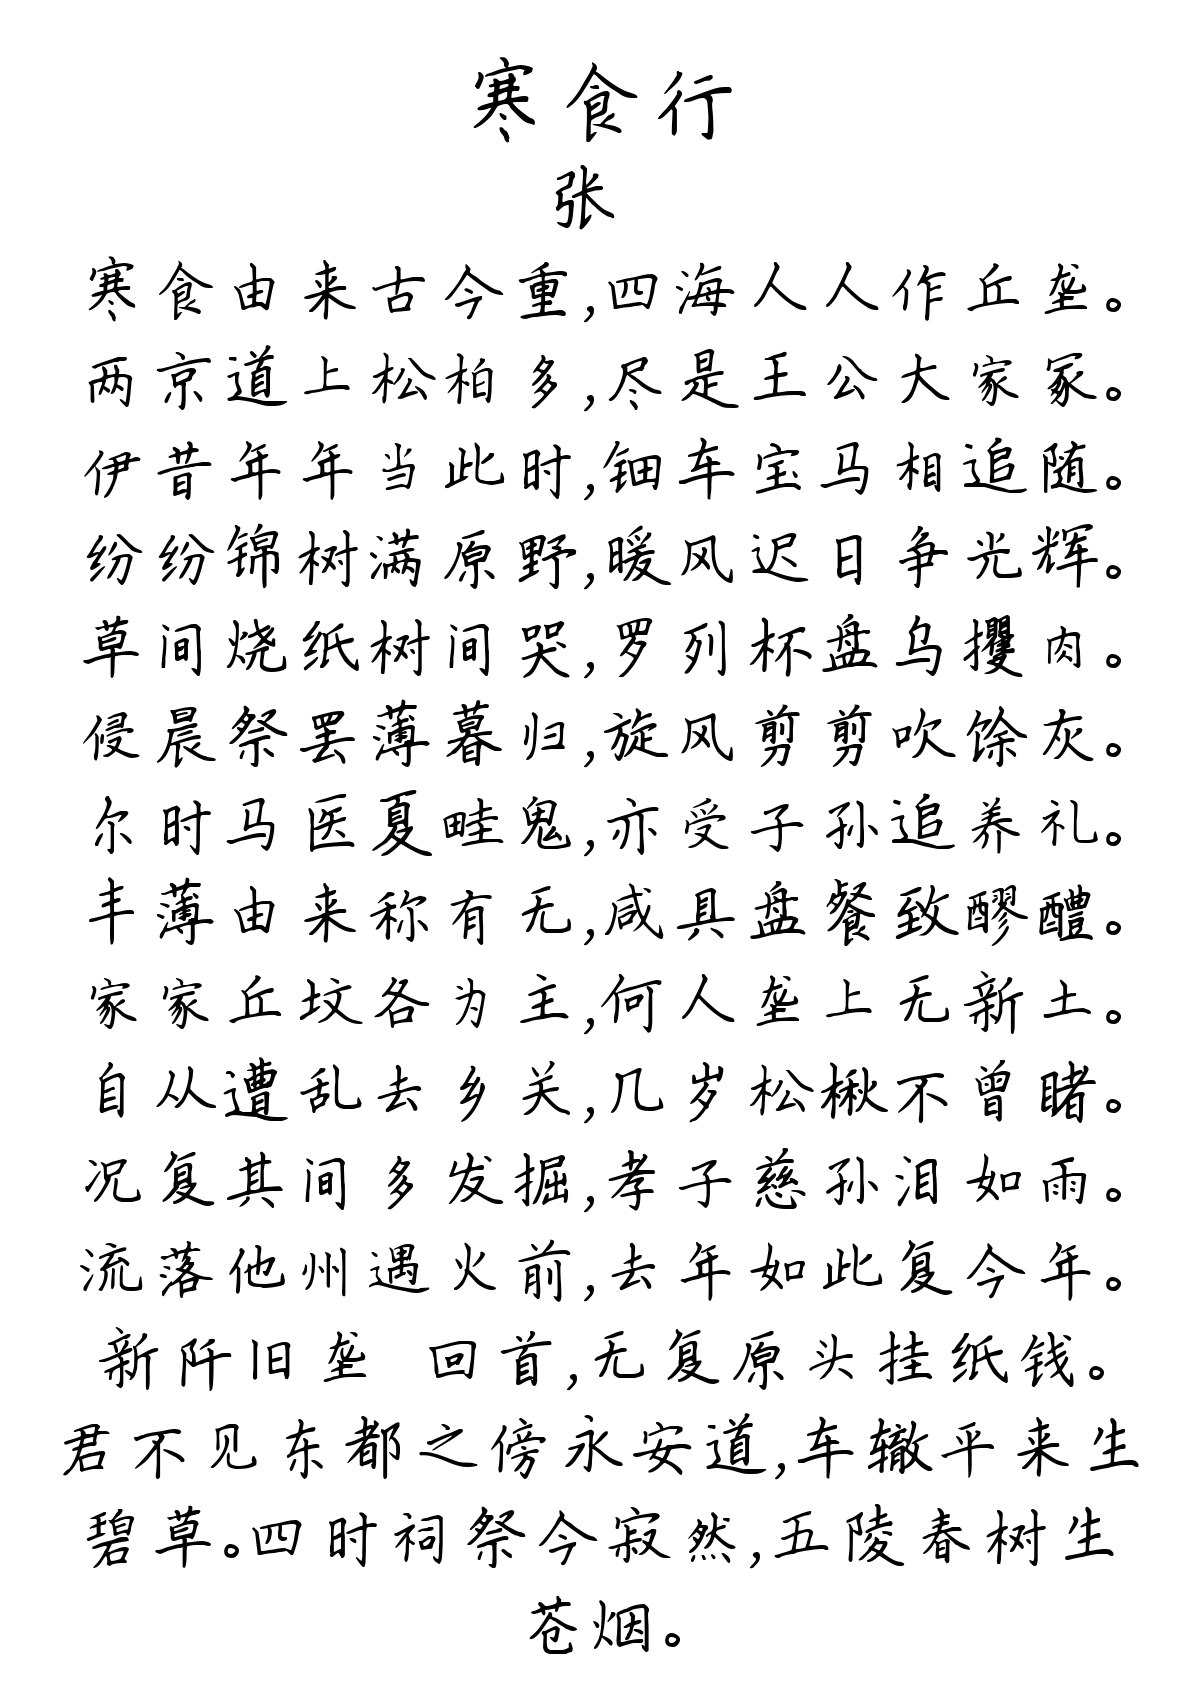 寒食行
张
寒食由来古今重,四海人人作丘垄。
两京道上松柏多,尽是王公大家冢。
伊昔年年当此时,钿车宝马相追随。
纷纷锦树满原野,暖风迟日争光辉。
草间烧纸树间哭,罗列杯盘乌攫肉。
侵晨祭罢薄暮归,旋风剪剪吹馀灰。
尔时马医夏畦鬼,亦受子孙追养礼。
丰薄由来称有无,咸具盘餐致醪醴。
家家丘坟各为主,何人垄上无新土。
自从遭乱去乡关,几岁松楸不曾睹。
况复其间多发掘,孝子慈孙泪如雨。
流落他州遇火前,去年如此复今年。
新阡旧垄 回首,无复原头挂纸钱。
君不见东都之傍永安道,车辙平来生
碧草。四时祠祭今寂然,五陵春树生
苍烟。